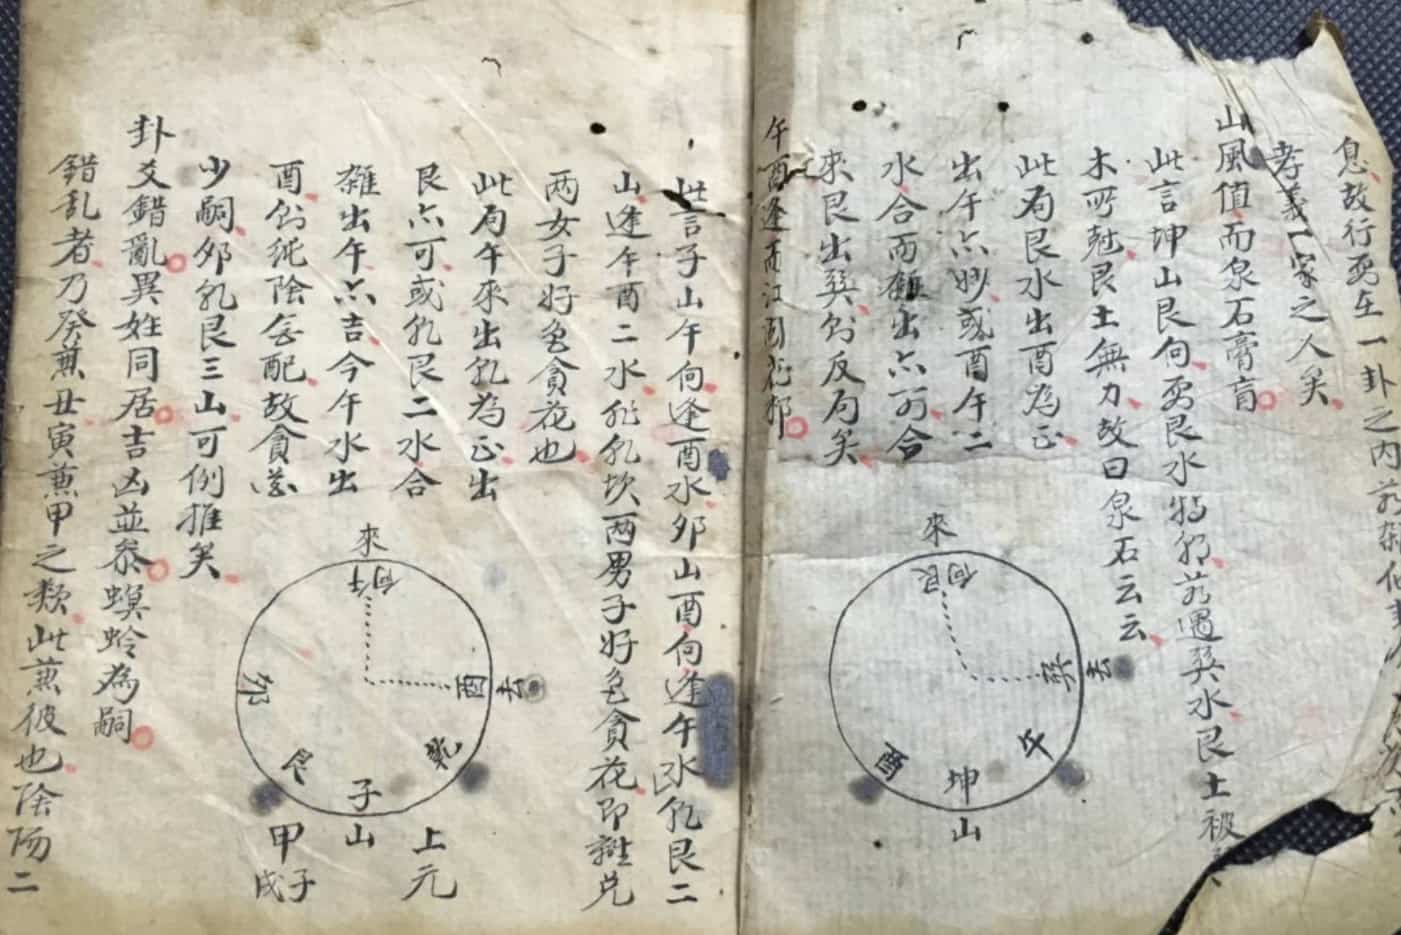 息故行
一卦之内
孝義一家之人矣
山風值而泉石膏肓
此言坤山艮向
艮水特
遇巽水艮土被
木所尅艮土無力故曰泉石云云
此局艮水出酉為正
出午亦妙或酉午二
水合而雜出亦可合
來艮出巽則反局矣
來
向艮
巽去
午
酉
坤
山
午酉逢而江湖花
此言子山午向逢酉水卯山酉向逢午水乾艮二
山逢午酉二水
乾坎两男子好色貪花即離兑
两女子好色貪花也
此局午來出乾為正出
艮亦可或乾艮二水合
雜出午亦吉今午水出
酉則純陰無配故貪花
少嗣卯乾艮三山可例推矣
來
向午
酉去
卯
艮
乾
子
山
上元
甲子
戌
卦爻錯亂異姓同居吉凶並忝螟蛉為嗣
錯乱者乃癸兼丑寅兼甲之類此兼彼也陰陽二